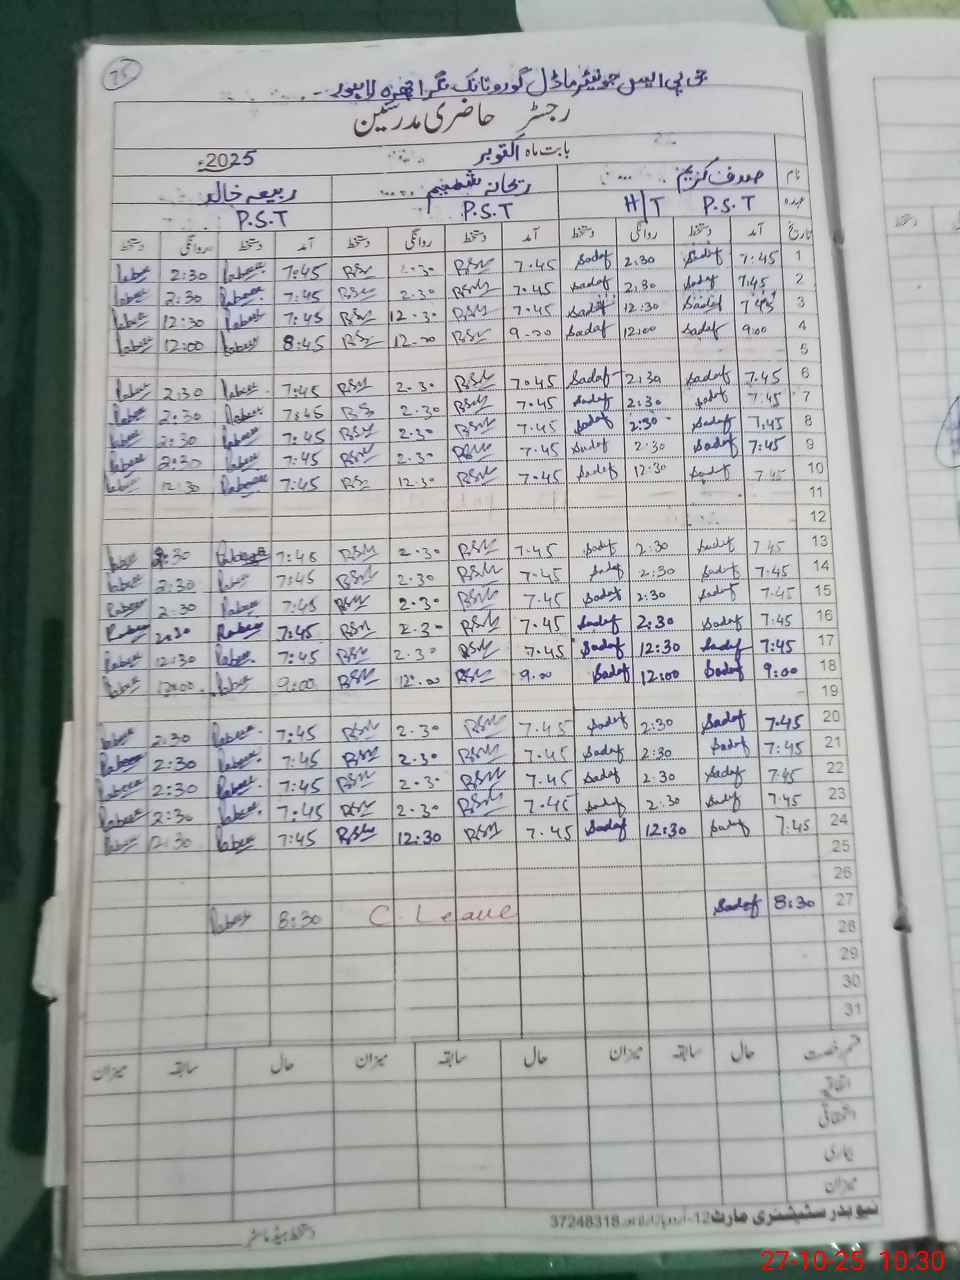 75
جی پی ایس جونیئر ماڈل گورونانک نگر اچھرہ لاہور
رجسٹر حاضری مدرسین
بابت ماہ اکتوبر 2025ء
نام صدف کریم ریحانہ شمیم ربیعہ خالد
عہدہ P.S.T H|T P.S.T P.S.T
تاریخ آمد دستخط روانگی دستخط آمد دستخط روانگی دستخط آمد دستخط روانگی دستخط
1 7:45 Sadaf 2:30 Sadaf 7.45 RSM 2.30 RSM 7:45 Rabeea 2:30 Rabeea
2 7:45 Sadaf 2:30 Sadaf 7.45 RSM 2.30 RSM 7:45 Rabeea 2:30 Rabeea
3 7:45 Sadaf 12:30 Sadaf 7.45 RSM 12.30 RSM 7:45 Rabeea 12:30 Rabeea
4 9:00 Sadaf 12:00 Sadaf 9.00 RSM 12.00 RSM 8:45 Rabeea 12:00 Rabeea
5
6 7:45 Sadaf 2:30 Sadaf 7.45 RSM 2.30 RSM 7:45 Rabeea 2:30 Rabeea
7 7:45 Sadaf 2:30 Sadaf 7.45 RSM 2.30 RS 7:45 Rabeea 2:30 Rabeea
8 7:45 Sadaf 2:30 Sadaf 7.45 RSM 2.30 RSM 7:45 Rabeea 2:30 Rabeea
9 7:45 Sadaf 2:30 Sadaf 7.45 RSM 2.30 RSM 7:45 Rabeea 2:30 Rabeea
10 7:45 Sadaf 12:30 Sadaf 7.45 RSM 12.30 RSM 7:45 Rabeea 12:30 Rabeea
11
12
13 7:45 Sadaf 2:30 Sadaf 7.45 RSM 2.30 RSM 7:45 Rabeea 2:30 Rabeea
14 7:45 Sadaf 2:30 Sadaf 7.45 RSM 2.30 RSM 7:45 Rabeea 2:30 Rabeea
15 7:45 Sadaf 2:30 Sadaf 7.45 RSM 2.30 RSM 7:45 Rabeea 2:30 Rabeea
16 7:45 Sadaf 2:30 Sadaf 7.45 RSM 2.30 RSM 7:45 Rabeea 2:30 Rabeea
17 7:45 Sadaf 12:30 Sadaf 7.45 RSM 2.30 RSM 7:45 Rabeea 12:30 Rabeea
18 9:00 Sadaf 12:00 Sadaf 9.00 RSM 12.00 RSM 9:00 Rabeea 12:00 Rabeea
19
20 7:45 Sadaf 2:30 Sadaf 7.45 RSM 2.30 RSM 7:45 Rabeea 2:30 Rabeea
21 7:45 Sadaf 2:30 Sadaf 7.45 RSM 2.30 RSM 7:45 Rabeea 2:30 Rabeea
22 7:45 Sadaf 2:30 Sadaf 7.45 RSM 2.30 RSM 7:45 Rabeea 2:30 Rabeea
23 7:45 Sadaf 2:30 Sadaf 7.45 RSM 2.30 RSM 7:45 Rabeea 2:30 Rabeea
24 7:45 Sadaf 12:30 Sadaf 7.45 RSM 12:30 RSM 7:45 Rabeea 12:30 Rabeea
25
26
27 8:30 Sadaf C. Leave 8:30 Rabeea
28
29
30
31
قسم رخصت حال سابقہ میزان حال سابقہ میزان حال سابقہ میزان
اتفاقیہ
استحقاقی
بیماری
میزان
نیو بدر سٹیشنری مارٹ 12-اردو بازار لاہور 37248318
دستخط ہیڈ ماسٹر
27-10-25 10:30